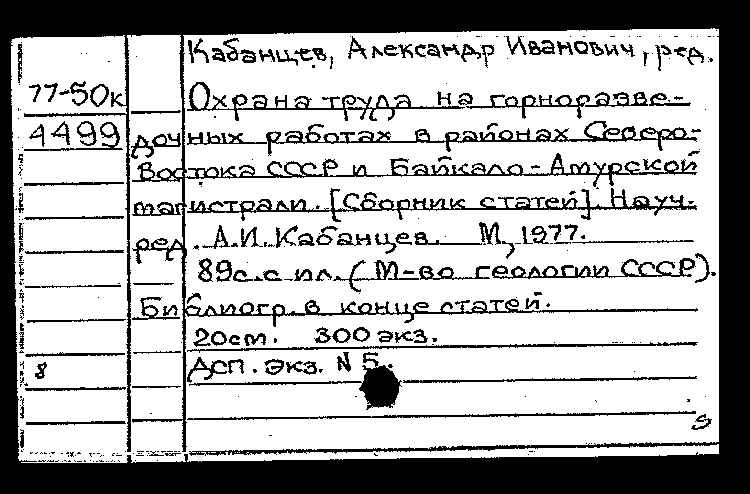 Кабанцев, Александр Иванович, ред.
77-50к Охрана труда на горноразве-
4499 дочных работах в районах Северо-
Востока СССР и Байкало-Амурской
магистрали. [Сборник статей]. Науч.
ред. А.И. Кабанцев. М, 1977.
89с. с ил. (М-во геологии СССР).
Библиогр. в конце статей.
20см. 300 экз.
8 Дсп. экз. N 5.